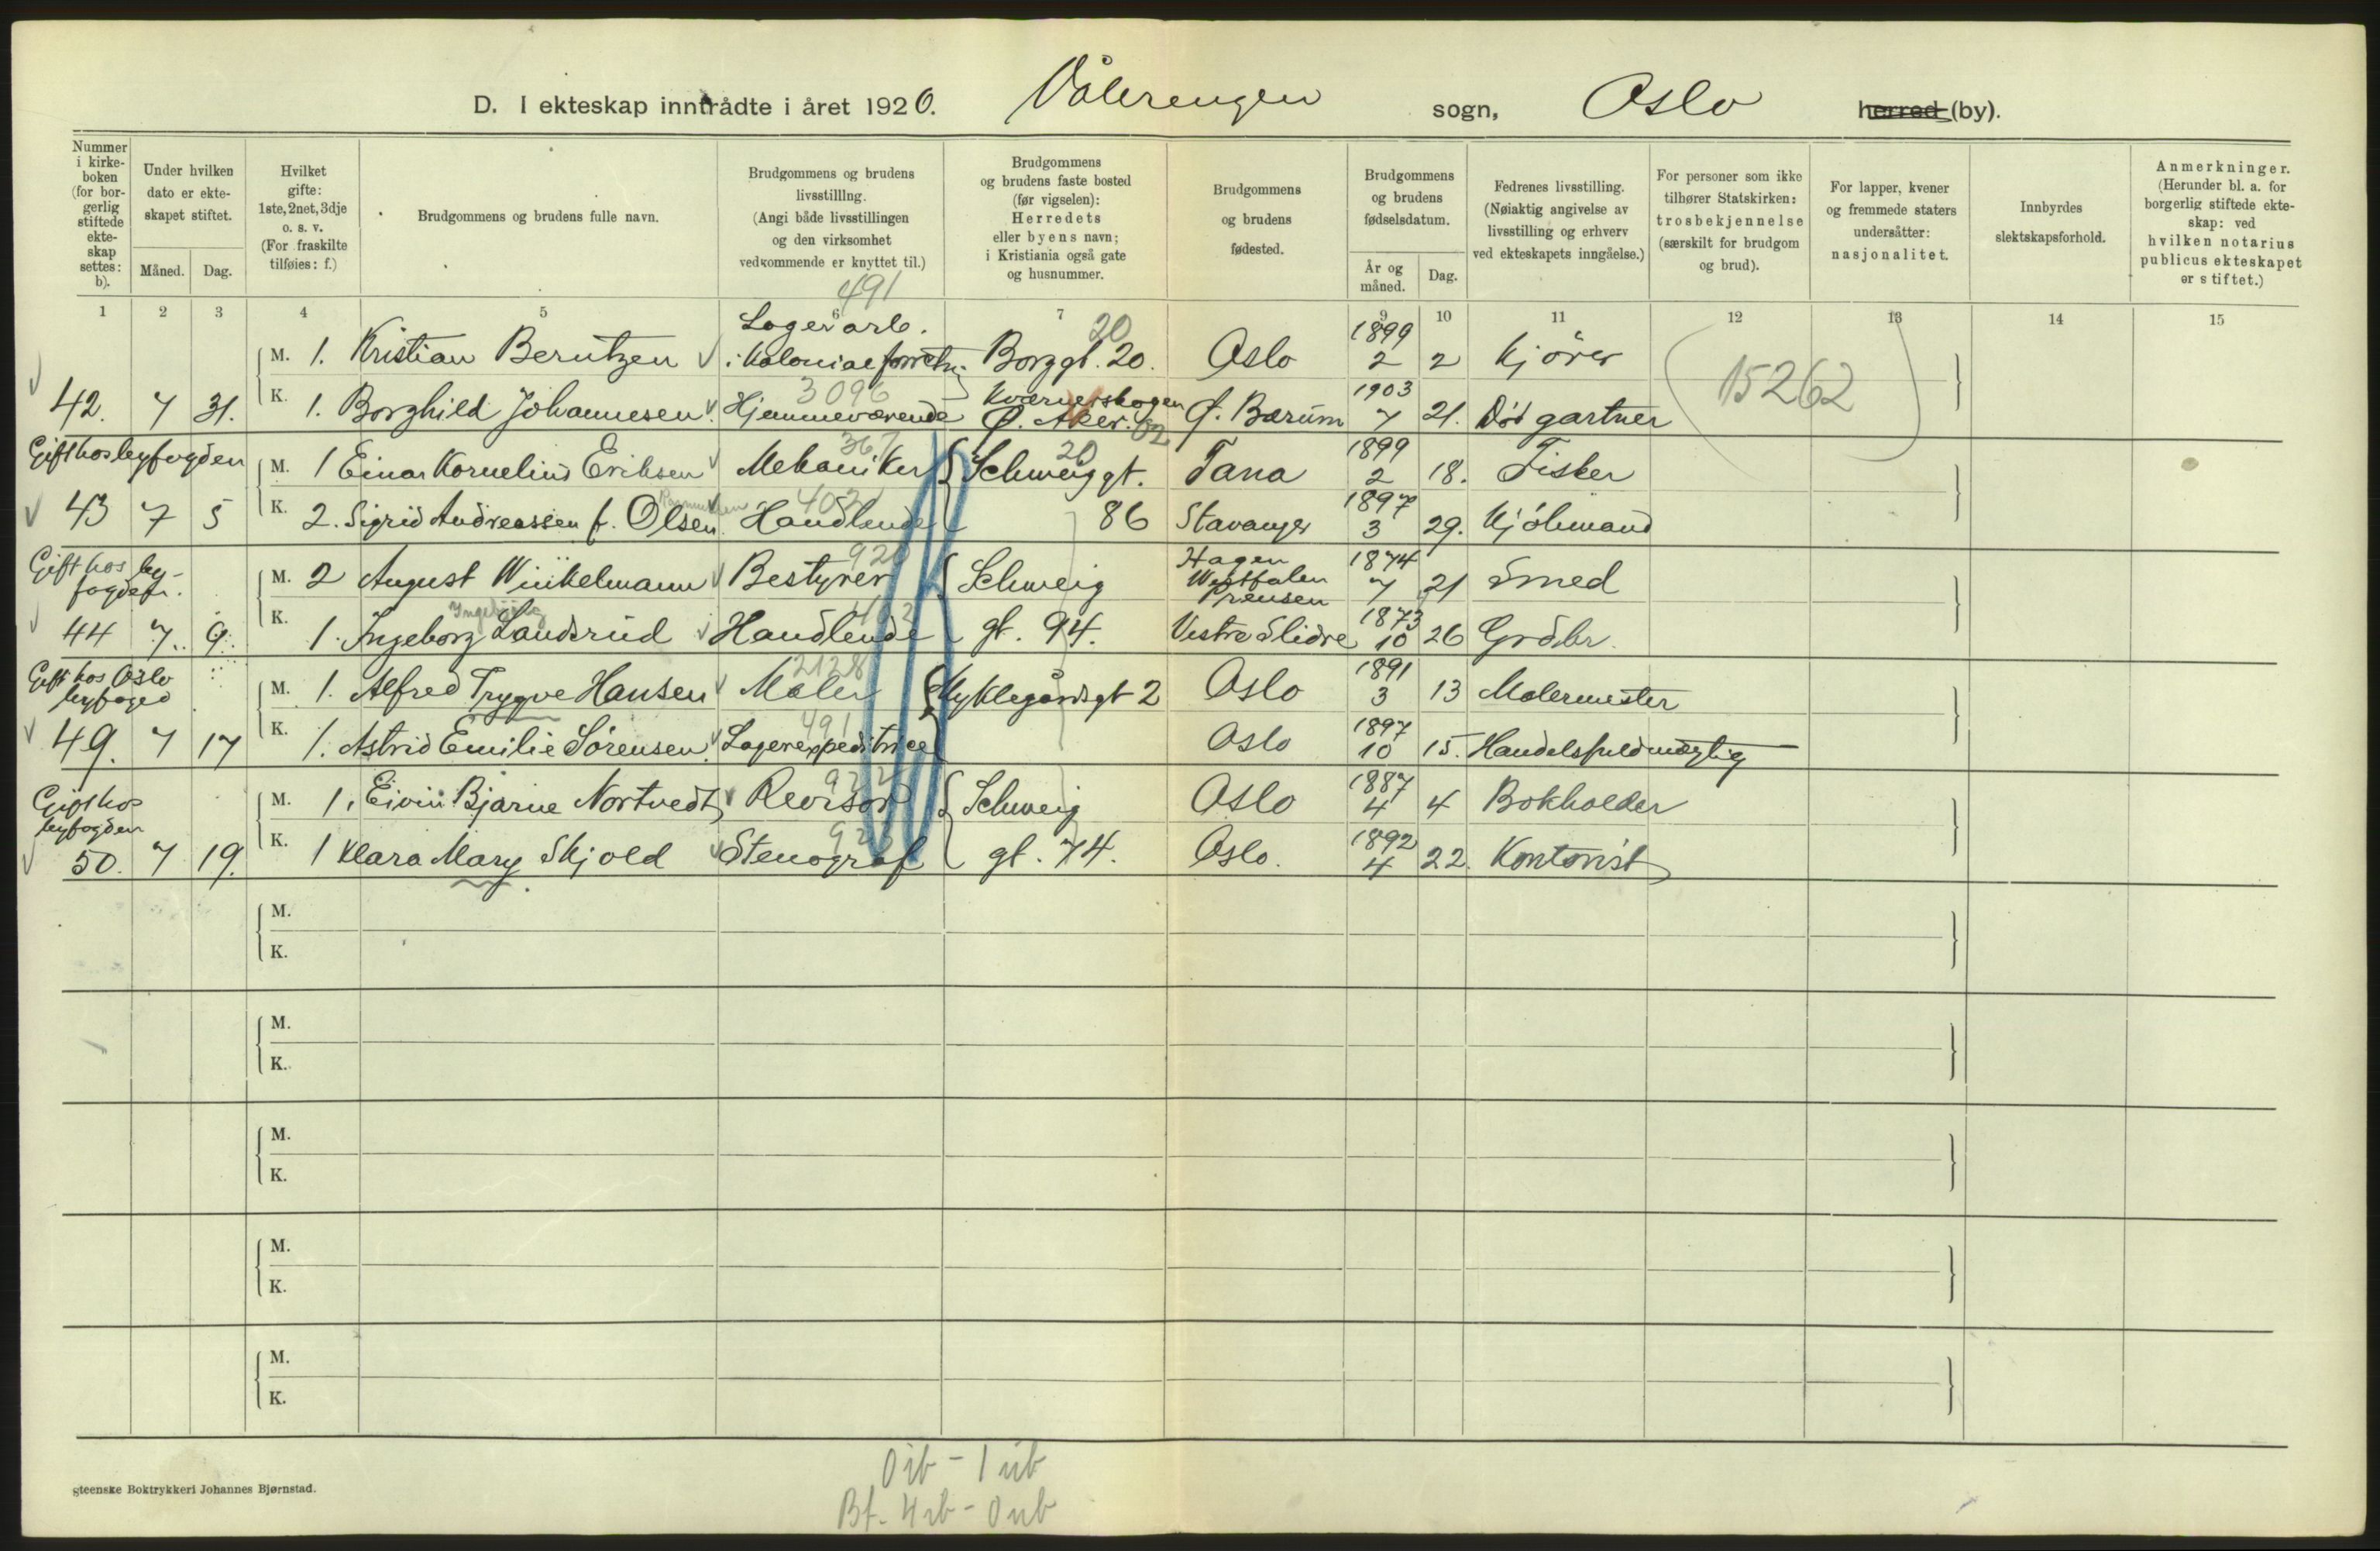 D. I ekteskap inntrådte i året 1920. Vålerengen sogn, Oslo herred (by).
Nummer i kirke-boken (for bor-gerlig stiftede ekte-skap settes: b).
Under hvilken dato er ekte-skapet stiftet.
Måned.
Dag.
Hvilket gifte: 1ste, 2net, 3dje o. s. v. (For fraskilte tilføies: f.)
Brudgommens og brudens fulle navn.
Brudgommens og brudens livsstilllng. (Angi både livsstillingen og den virksomhet vedkommende er knyttet til.)
Brudgommens og brudens faste bosted (før vigselen): Herredets eller byens navn; i Kristiania også gate og husnummer.
Brudgommens og brudens fødested.
Brudgommens og brudens fødselsdatum.
År og måned.
Dag.
Fedrenes livsstilling. (Nøiaktig angivelse av livsstilling og erhverv ved ekteskapets inngåelse.)
For personer som ikke tilhører Statskirken: trosbekjennelse (særskilt for brudgom og brud).
For lapper, kvener og fremmede staters undersåtter: nasjonalitet.
Innbyrdes slektskapsforhold.
Anmerkninger. (Herunder bl. a. for borgerlig stiftede ekte-skap: ved hvilken notarius publicus ekteskapet er stiftet.)
1 2 3 4 5 6 7 9 10 11 12 13 14 15
491
M. 1. Kristian Berntzen Lagerarb. i Kolonialforretn. Borggt. 20. 20 Oslo 1899 2 2 Kjører
15262
42. 7 31. K. 1. Borghild Johannesen. Hjemmeværende 3096 Kværnerskogen Ø. Aker. 02 Ø. Bærum 1903 7 21. Død gartner
Gift hos byfogden M. 1 Einar Kornelius Eriksen Mekaniker 367 Schweiggt. 20 Tana 1899 2 18. Fisker
43 7 5 K. 2. Sigrid Andreassen f. Olsen Handlende 402 86 Stavanger 1897 3 29. Kjøbmand
Gift hos by-fogden. M. 2 August Winkelmann Bestyrer 920 Schweig Hagen Westfalen Preusen 1874 7 21 Smed
44 7. 9. K. 1. Ingeborg Landsrud Handlende 402 gt. 94. Vestre Slidre 1873 10 26 Grdbr.
Gift hos Oslo byfoged M. 1. Alfred Trygve Hansen Maler 2128 Myklegårdsgt 2 Oslo 1891 3 13 Malermester
49. 7 17 K. 1. Astrid Emilie Sørensen. Lagerexpeditrice 491 Oslo 1897 10 15. Handelsfuldmægtig
Gift hos byfogden M. 1. Eivin Bjarne Nortvedt Revisor 922 Schweig Oslo 1887 4 4 Bokholder
50. 7 19. K. 1 Klara Mary Skjold Stenograf gt. 74. Oslo. 1892 4 22. Kontorist
M.
K.
M.
K.
M.
K.
M.
K.
M.
K.
0 ib - 1 ub
Bf. 4 ib - 0 ub
Steenske Boktrykkeri Johannes Bjørnstad.